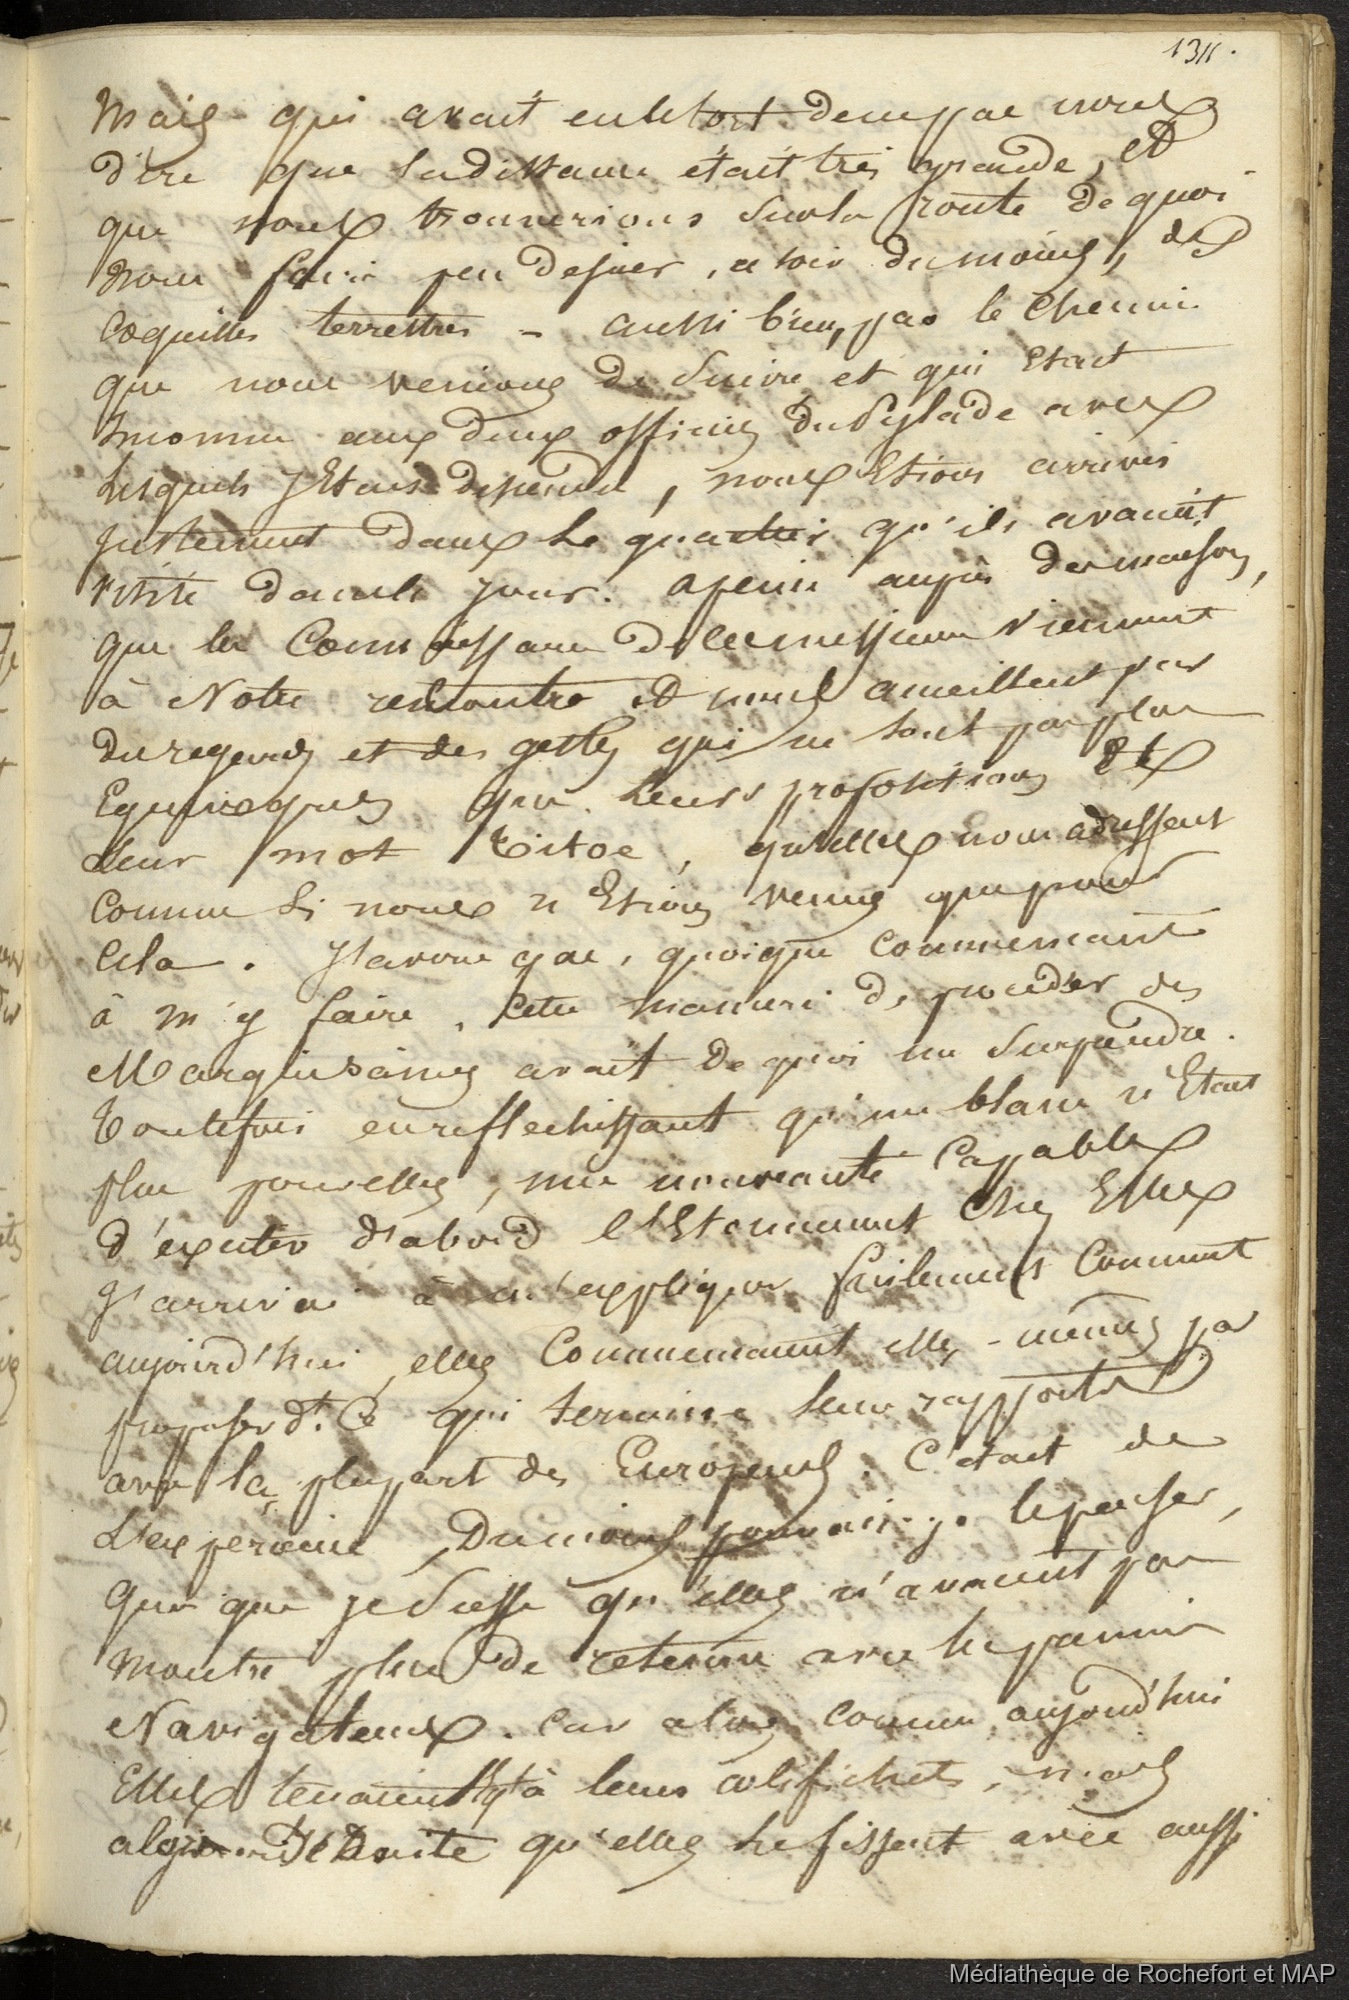 1311.
Mais qui avait eu le tort de ne pas nous
dire que la distance était très grande, et
que nous trouverions sur la route de quoi
nous faire peu desirer, a voir du moins, des
Coquilles terrestres - aussi bien, par le chemin
que nous venions de suivre et qui Etait
inconnu aux deux officiers du Pylade avec
lesquels J'Etais descendu, nous Etions arrivés
justement dans le quartier qu'ils avaient
visité dans le jour. a peine auprès des maisons,
que les Connaissances de ces messieurs viennent
à Notre rencontre et nous accueillent par
des regards et des gestes qui ne sont pas plus
Equivoques que leurs propositions et
leur mot Titoe, qu'elles nous adressent
Comme Si nous n'Etions venus que pour
Cela. J'avoue que, quoique Commençant
à m'y faire, cette manière de procéder des
Marquisaines avait de quoi me Surprendre.
Toutefois en reflechissant qu'un blanc n'Etait
plus pour elles, une nouveauté Capable
d'exciter d'abord l'Etonnement chez Elles
J'arrivai à m'expliquer facilement Comment
aujourd'hui elles Commencaient elles-mêmes par
proposer Ce qui termine leurs rapports
avec la plupart des Européens. C'était de
L'experience, Du moins pouvais-je le penser,
Quoi que je Susse qu'elles n'avaient pas
montré plus de retenue avec les premiers
Navigateurs. Car alors comme aujourd'hui
Elles tenaient à leurs colifichets, mais
alors Je doute qu'elles le fissent avec aussi
Médiathèque de Rochefort et MAP